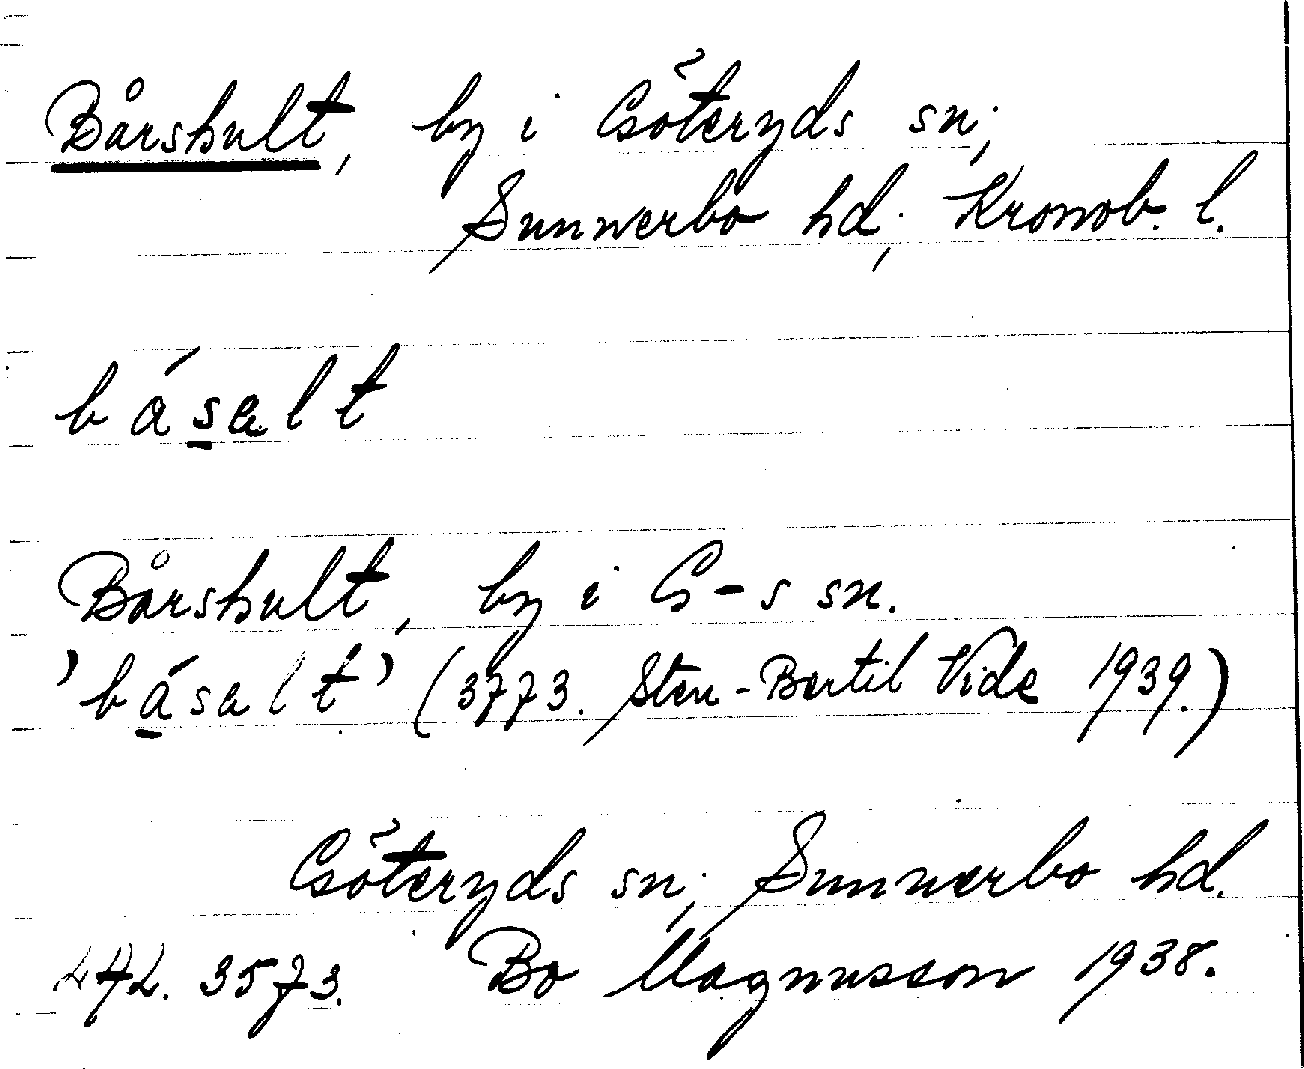 Bårshult, by i Göteryds sn;
Sunnerbo hd; Kronob. l.
básalt
Bårshult, by i G-s sn.
'básalt' (3773. Sten-Bertil Vide 1939.)
Göteryds sn; Sunnerbo hd.
LAL. 3573. Bo Magnusson 1938.